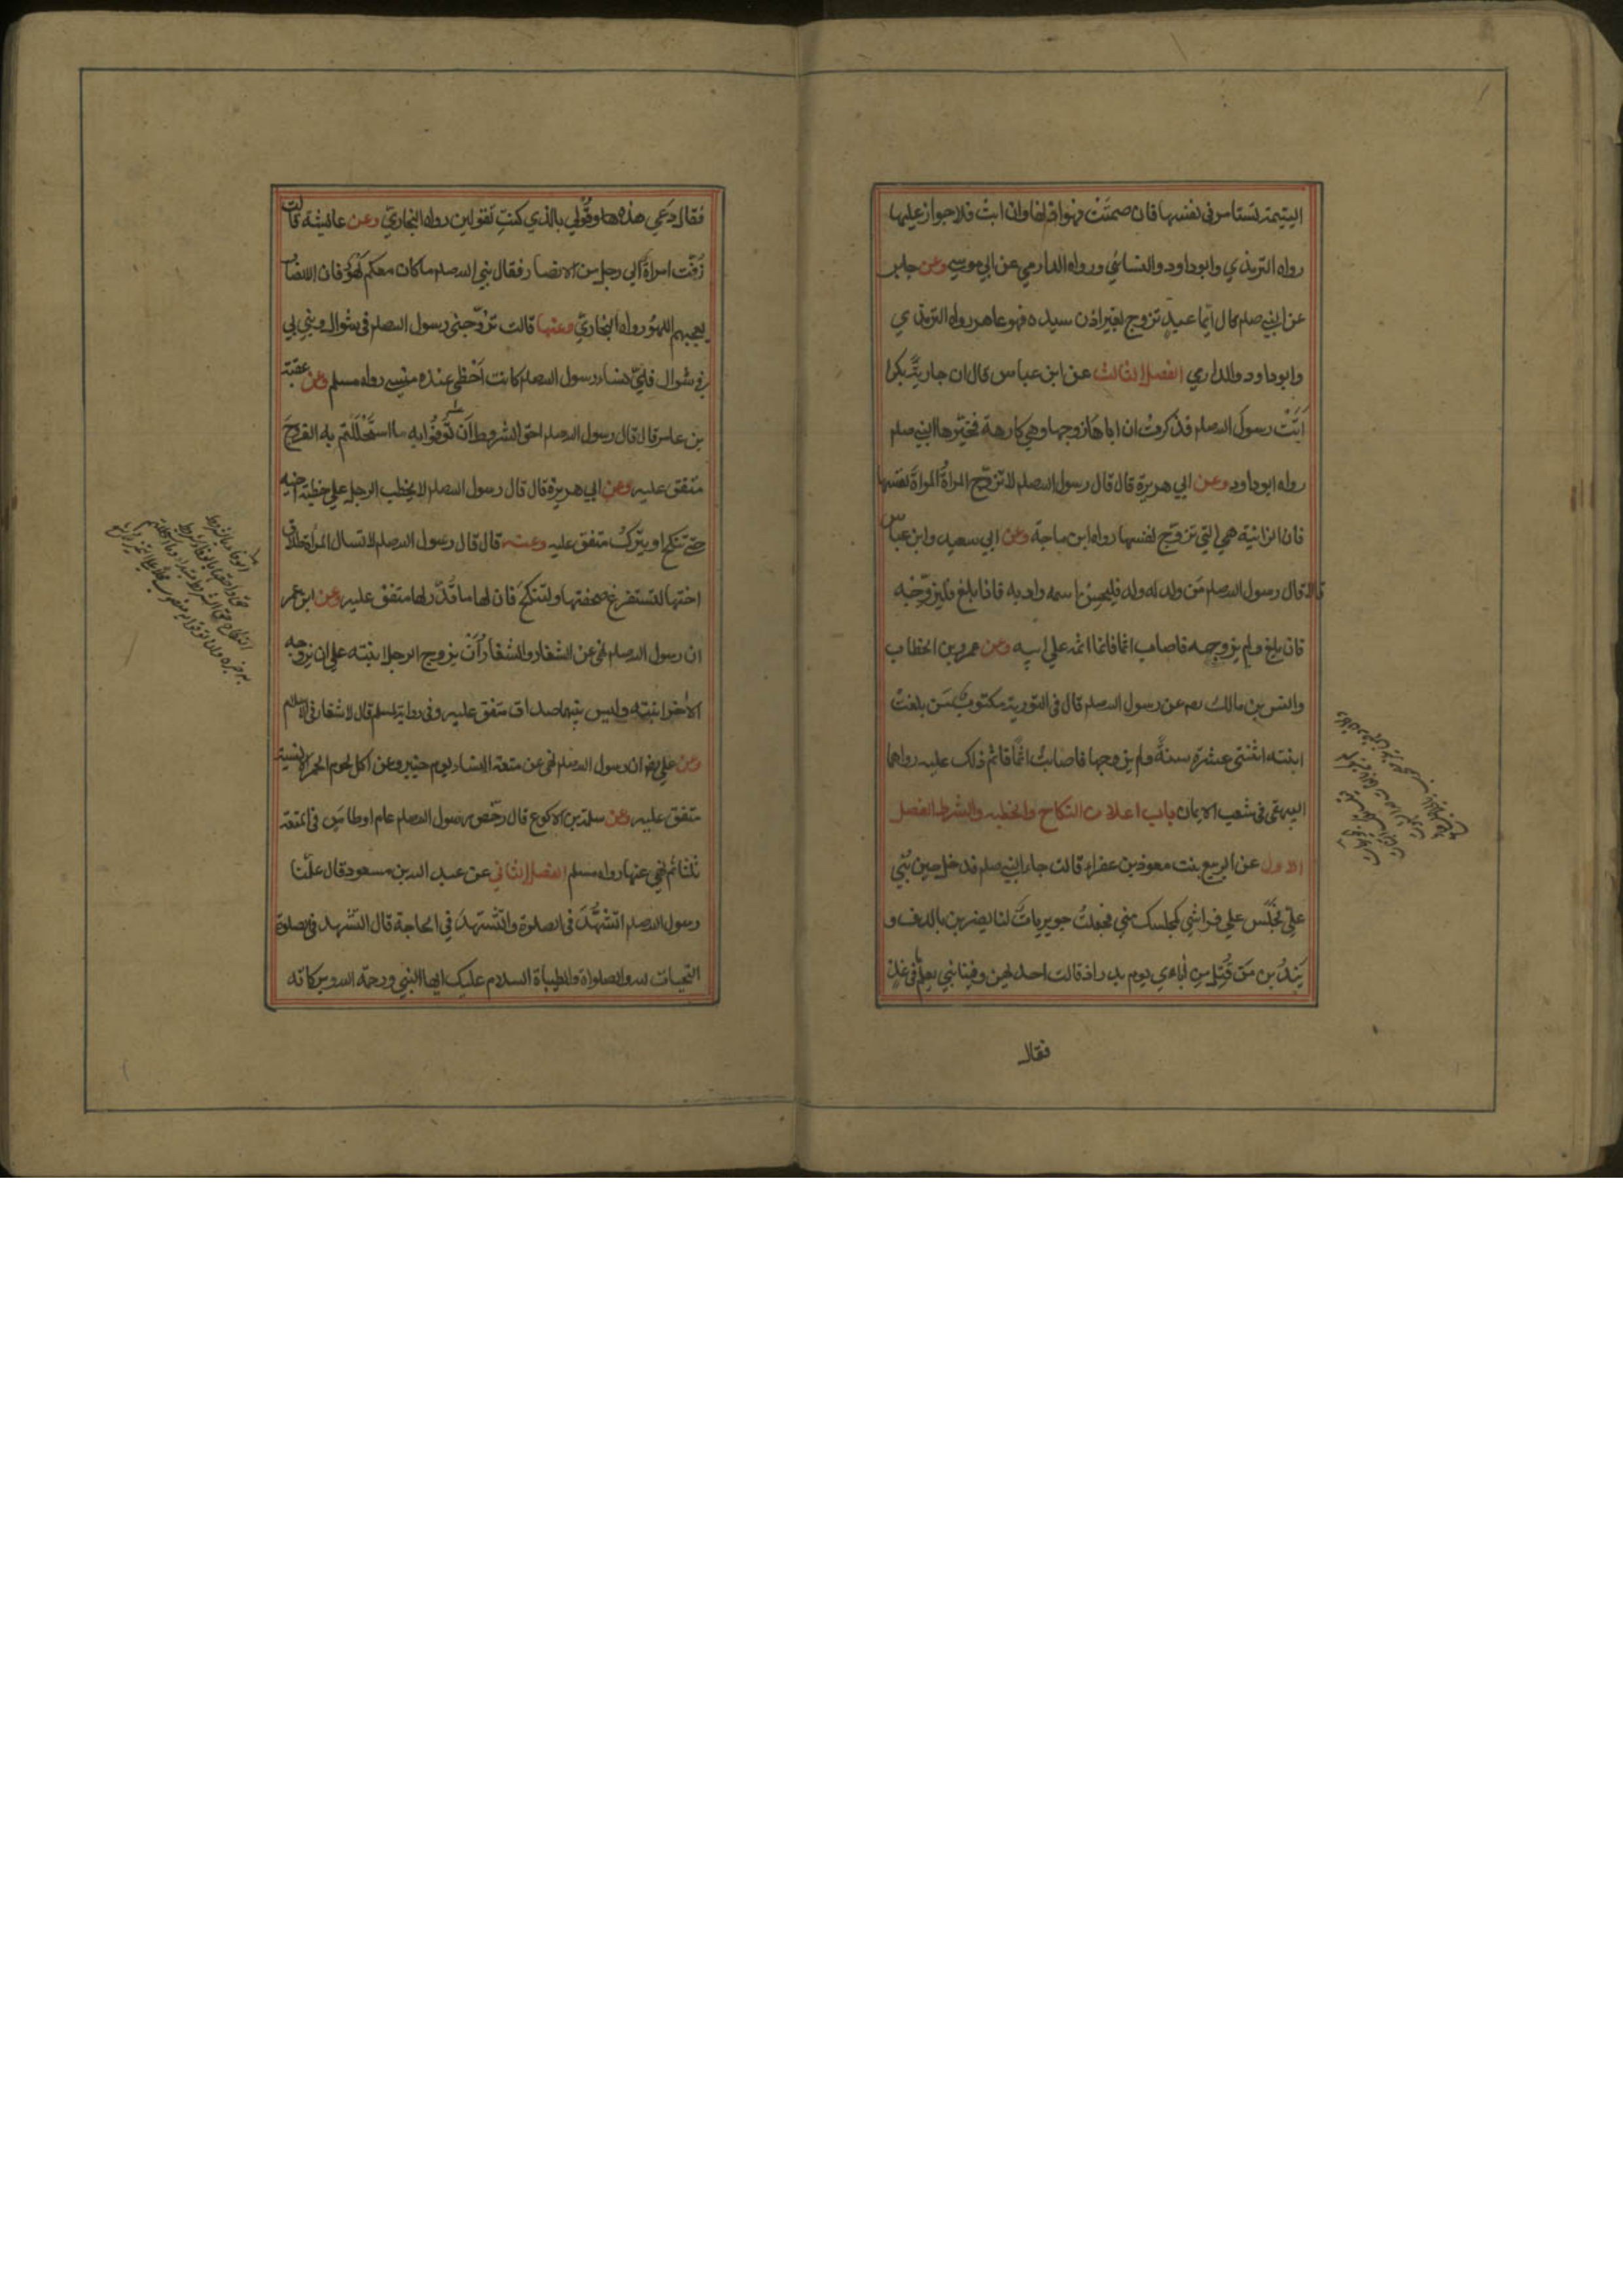 اليتيمة تستامر فى نفسها فان صمتت فهو اذنها وان ابت فلا جواز عليها
رواه الترمذي وابوداود والنسائي ورواه الدارمي عن ابي موسي وعن جابر
عن النبي صلم قال ايما عبد تزوج بغير اذن سيده فهو عاهر رواه الترمذي
وابوداود والدارمي الفصل الثالث عن ابن عباس قال ان جارية بكرا
اتت رسول الله صلم فذكرت ان اباها زوجها وهي كارهة فخيرها النبي صلم
رواه ابوداود وعن ابي هريرة قال قال رسول الله صلم لا تزوج المراة المراة نفسها
فان الزانية هي التي تزوج نفسها رواه ابن ماجة وعن ابي سعيد وابن عباس
قالا قال رسول الله صلم من ولد له ولد فليحسن اسمه وادبه فاذا بلغ فليزوجه
فان بلغ ولم يزوجه فاصاب اثما فانما اثمه علي ابيه وعن عمر بن الخطاب
وانس بن مالك رضه عن رسول الله صلم قال فى التورية مكتوب من بلغت
ابنته اثنتى عشرة سنة ولم يزوجها فاصابت اثما فاثم ذلك عليه رواهما
البيهقى فى شعب الايمان باب اعلان النكاح والخطبه والشرط الفصل
الاول عن الربيع بنت معوذ بن عفراء قالت جاء النبي صلم فدخل حين بني
علي فجلس علي فراشي كمجلسك مني فجعلت جويريات لنا يضربن بالدف و
يندبن من قتل من اباءي يوم بدر اذ قالت احدلهن وفينا نبي يعلم ما فى غد
فقال
فقال دعي هذه ها وقولي بالذي كنت تقولين رواه البخاري وعن عايشة قالت
زفت امراة الي رجل من الانصار فقال نبي الله صلم ما كان معكم لهو فان الانصار
يعجبهم اللهو رواه البخاري وعنها قالت تزوجني رسول الله صلم فى شوال وبني بي
فى شوال فاي نساء رسول الله صلم كانت احظى عنده مني رواه مسلم وعن عقبة
بن عامر قال قال رسول الله صلم احق الشروط ان توفوا به ما استحللتم به الفروج
متفق عليه وعن ابي هريرة قال قال رسول الله صلم لا يخطب الرجل علي خطبة اخيه
حتي تنكح او يترك متفق عليه وعنه قال قال رسول الله صلم لا تسال المراة طلاق
اختها لتستفرغ صحفتها ولتنكح فان لها ما قدر لها متفق عليه وعن ابن عمر
ان رسول الله صلم نهى عن الشغار والشغار ان يزوج الرجل ابنته علي ان يزوجه
الاخر ابنته وليس بينهما صداق متفق عليه وفى رواية لمسلم قال لا شغار فى الاسلام
وعن علي رضه ان رسول الله صلم نهى عن متعة النساء يوم خيبر وعن اكل لحوم الحمر الانسية
متفق عليه وعن سلمة بن الاكوع قال رخص رسول الله صلم عام اوطاس فى المتعة
ثلثا ثم نهى عنها رواه مسلم الفصل الثاني عن عبد الله بن مسعود قال علمنا
رسول الله صلم التشهد فى الصلوة والتشهد في الحاجة قال التشهد فى الصلوة
التحيات لله والصلواة والطيباة السلام عليك ايها النبي ورحمة الله وبركاته